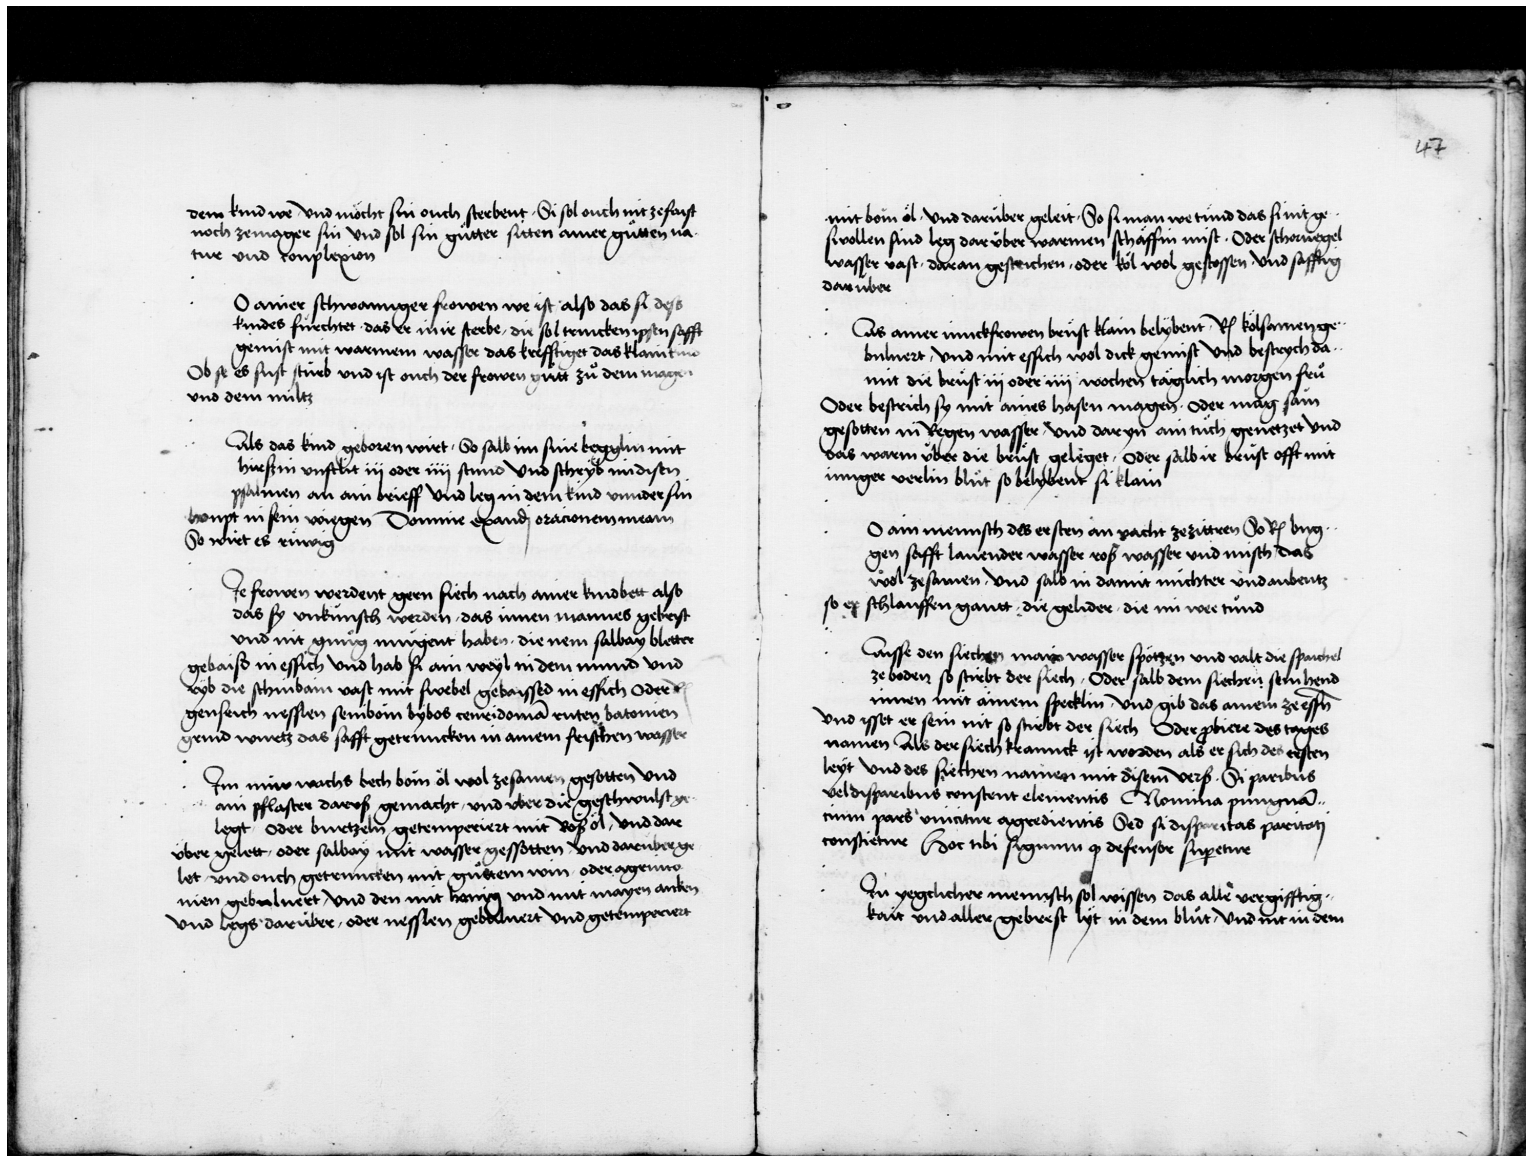 dem kind we / und möcht sin ouch sterbent · Si sol ouch nit ze faist
noch ze mager sin und sol sin gůtter sitten ainer gůtten na-
tur und complexion
O ainer schwanniger frowen we ist also das si dess
kindes fürchtet · das er inir sterbe · die sol trincken ypsen safft
gemist mit warmem wasser das krefftiget das klain kind
Ob se es sust stürb und ist ouch der frowen gůtt zů dem magen
und dem miltz
Als das kind geboren wirt · So salb im sine begglin mit
hirßin unschlit iij oder iiij stund Und schryb im disen
psalmen an ain brieff Und leg in dem kind under sin
houpt in sein wiegen Domine exaudi oracionem meam
So wirt es rüwig
Je frowen werdent gern siech nach ainer kindbett also
das sy unküusch werden · das innen mannes gebrist
und nit gnůg mugent haben · die nem salbay bletter
gebaißd in essich Und hab si ain weyl in dem mund Und
ryb die schinbain vast mit swebel gebaissed in essich Oder R
genserich nesslen senibom bybos ruten batonien
grind wurtz das safft getruncken in ainem frischen wasser
Im wachs bech bom öl wol zesamen gesotten Und
ain pflaster daruß gemacht · und uber die geschwulst ge-
legt · Oder burtzeln getemperiert mit Roß öl / Und dar
über gelett · oder salbay mit wasser gessotten / Und darüber ge
let · und ouch getruncken mit gůttem win · oder agrimo
nien gebulvert / Und den mit honig und mit mayen ancken
Und legs darüber · oder nesslen gebulvert Und getemperiert
47
mit bom öl / Und darüber geleit · So si man we tund das si nit ge-
swollen sind leg dar über warmen schäffin mist · Oder schornegel
wasser vast · daran gestrichen · oder köl wol gestossen / Und safftig
darüber
As ainer iunckfrowen brüst klain belybent · R kolsamen ge-
bulvert / Und mit essich wol dick gemist Und bestrych da-
mit die brüst iij oder iiij wochen täglich morgen frů
Oder bestrich sy mit aines hasen magen · oder mag sam
gesotten in Regen wasser / Und daryn ain tůch genetzet Und
das warm über die brüst geleget · Oder salb ir brüst offt mit
iunger verlin blůt so belybent si klain
O ain mennsch des ersten an vacht zezittren So R bug-
gen safft lavender wasser roß wasser und misch das
wol zesamen / Und salb in damit nüchter und aubentz
so er schlauffen gautt · die gelider · die im wee tůnd
Aisse den siechen wasser spötzen und valt die spaichel
ze boden so stirbt der siech / Oder salb dem siechen sein hend
innen mit ainem specklin / Und gib das ainem
Und isset er sein nit so stirbt der siech Oder probiere des tages
namen Als der siech kranck ist worden als er sich des ersten
leyt Und des siechen namen mit disem verß · Si paribus
vel disparibus constent elementis Nomina pungnan-
cium pars vincitur agredientis Sed si disparitas paritati
constietur Hoc tibi signum q defensor supetur
In yegclicher mennisch sol wissen das alle vergifftig-
kait und aller gebrest lyt in dem blůt / Und nit in dem